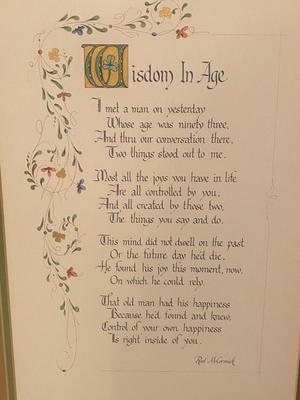 Wisdom In Age
I met a man on yesterday
Whose age was ninety three,
And thru our conversation there,
Two things stood out to me.
Most all the joys you have in life
Are all controlled by you,
And all created by those two,
The things you say and do.
This mind did not dwell on the past
Or the future day he'd die.
He found his joy this moment, now,
On which he could rely.
That old man had his happiness
Because he'd found and knew,
Control of your own happiness
Is right inside of you.
Rod McCormick